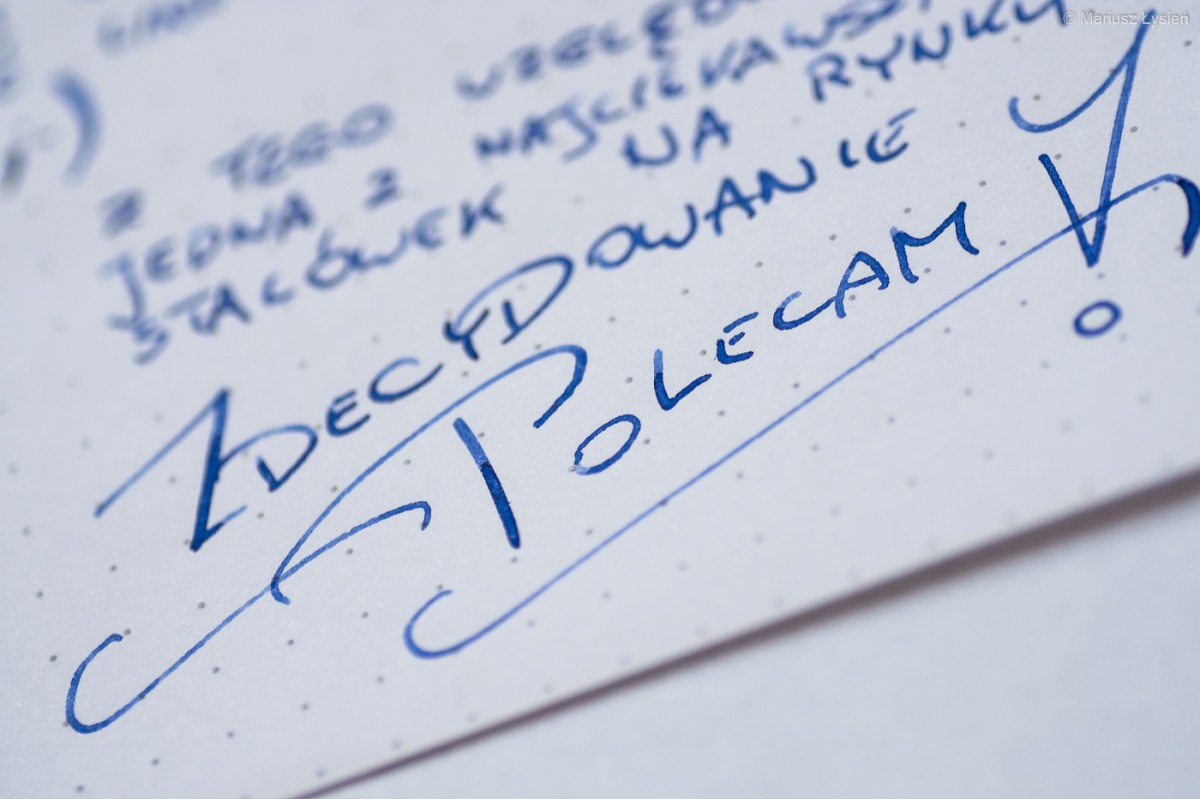 © Mariusz Łysień
Z TEGO WZGLĘDU
JEDNA Z NAJCIEKAWSZYCH
STALÓWEK NA RYNKU
ZDECYDOWANIE
POLECAM!